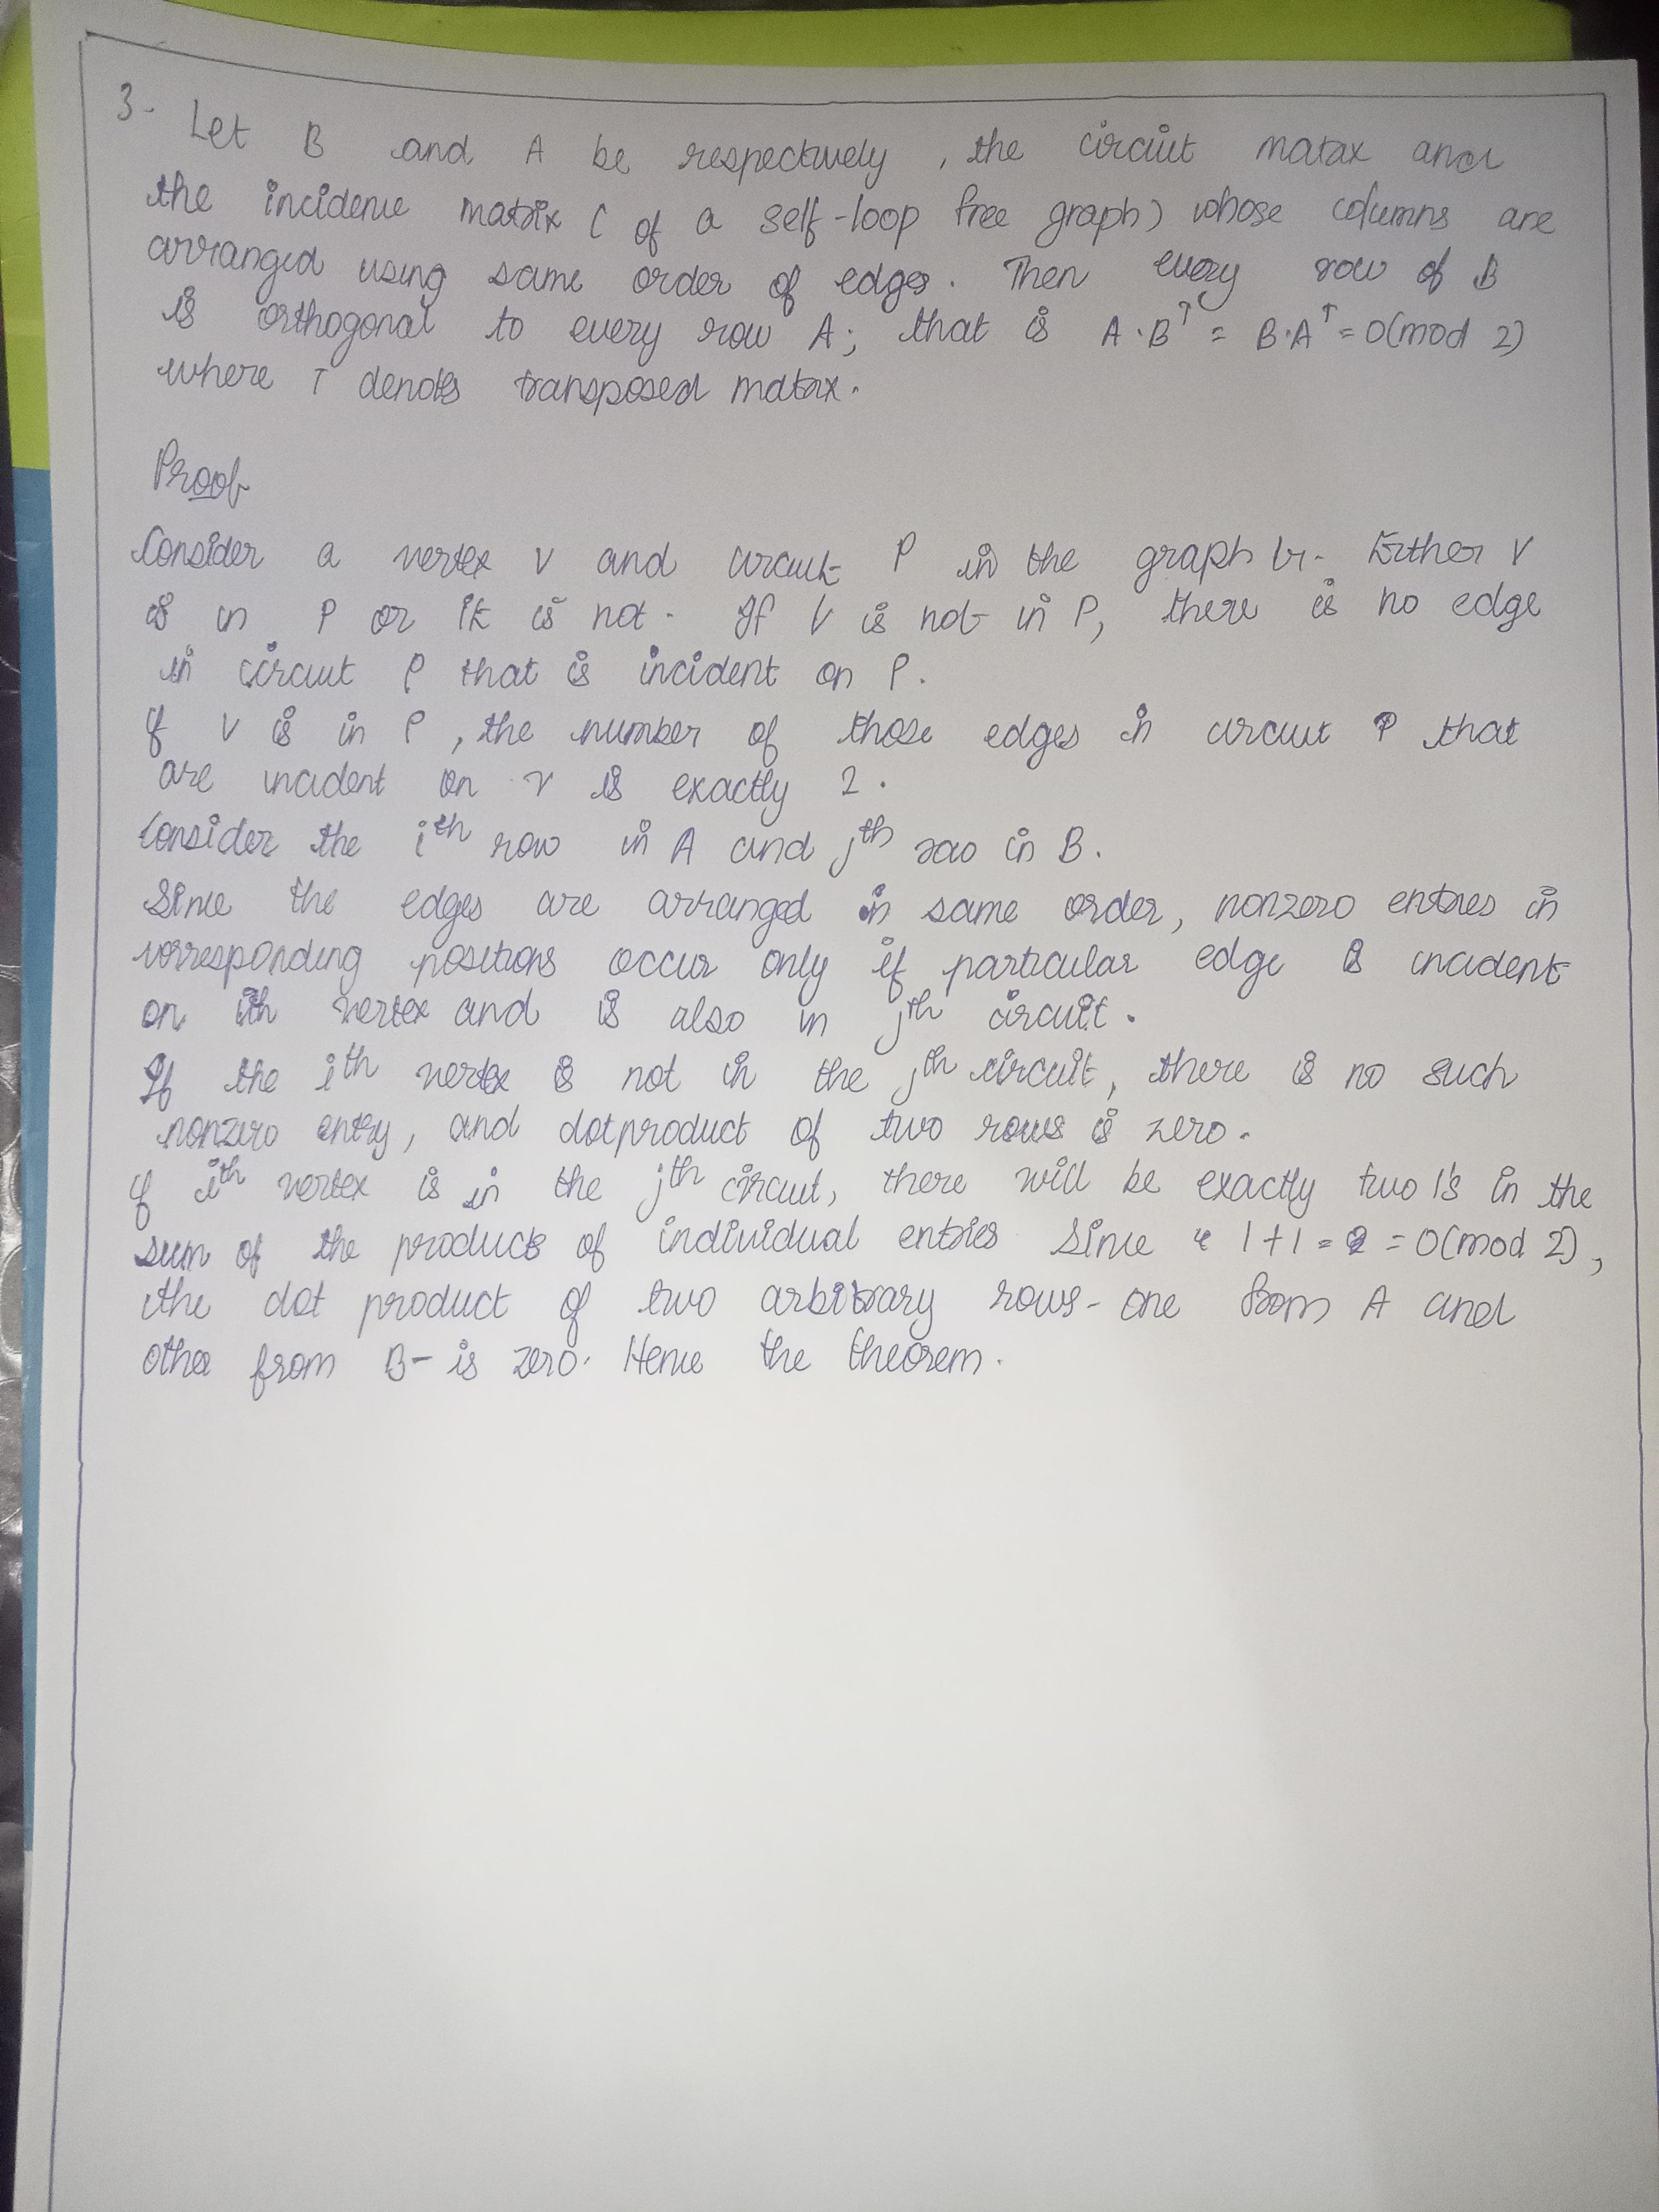 3. Let B and A be respectively, the circuit matrix and
the incidence matrix ( of a self-loop free graph) whose columns are
arranged using same order of edges. Then every row of B
is orthogonal to every row A; that is A·Bᵀ = B·Aᵀ = 0(mod 2)
where T denotes transposed matrix.
Proof
Consider a vertex V and circuit P in the graph G. Either V
is in P or it is not. If V is not in P, there is no edge
in circuit P that is incident on P.
If V is in P, the number of those edges in circuit P that
are incident on v is exactly 2.
Consider the iᵗʰ row in A and jᵗʰ row in B.
Since the edges are arranged in same order, nonzero entries in
corresponding positions occur only if particular edge is incident
on ith vertex and is also in jᵗʰ circuit.
If the iᵗʰ vertex is not in the jᵗʰ circuit, there is no such
nonzero entry, and dotproduct of two rows is zero.
If iᵗʰ vertex is in the jᵗʰ circuit, there will be exactly two 1's in the
sum of the products of individual entries Since 1+1=2=0(mod 2),
the dot product of two arbitrary rows- one from A and
other from B- is zero. Hence the theorem.